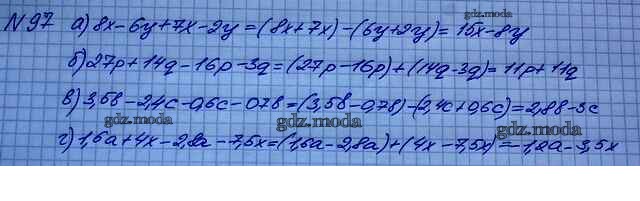 N97 а) 8x-6y+7x-2y=(8x+7x)-(6y+2y)=15x-8y
б) 27p+14q-16p-3q=(27p-16p)+(14q-3q)=11p+11q
gdz.moda
в) 3,5в-2,4с-0,6с-0,7в=(3,5в-0,7в)-(2,4с+0,6с)=2,8в-3с
gdz.moda gdz.moda gdz.moda
г) 1,6a+4x-2,8a-7,5x=(1,6a-2,8a)+(4x-7,5x)=-1,2a-3,5x